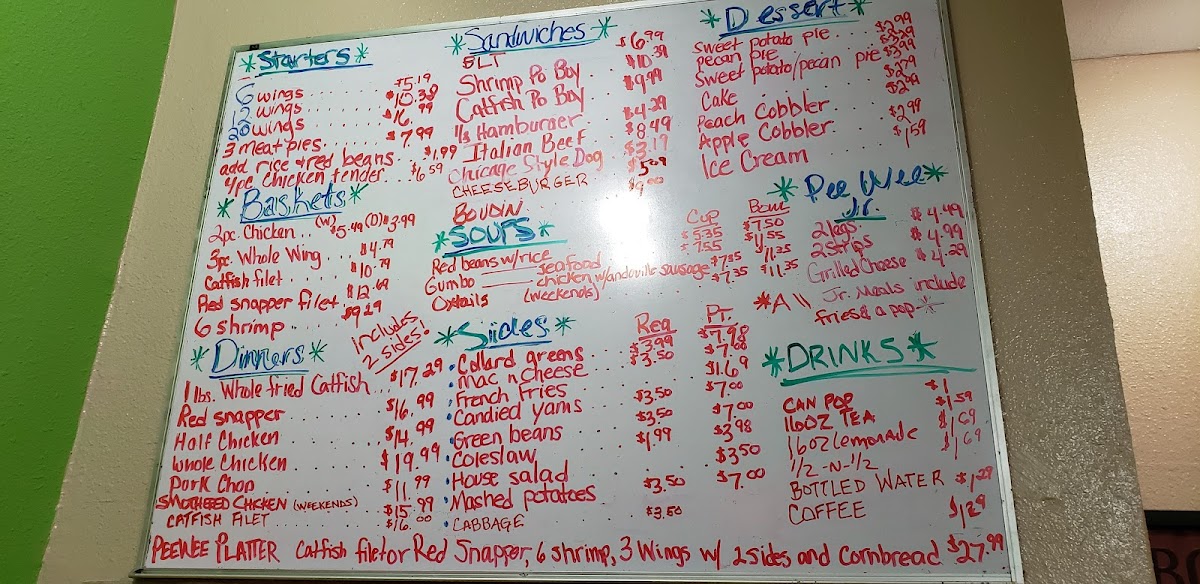 *Starters*
6 wings . . . . $5.19
12 wings . . . . $10.38
20 wings . . . . $16.99
3 meat pies . . . . $7.99
add rice & red beans . . $1.99
4pc chicken tender . . $6.59
*Baskets*
2pc. Chicken . . (W) $5.49 (D) $3.99
3pc. Whole Wing . . $4.79
Catfish filet . . . . $10.79
Red snapper filet . $12.69
6 shrimp . . . . $9.29
*Dinners*
includes 2 sides!
1 lbs. Whole fried Catfish . . $17.29
Red snapper . . . . $16.99
Half Chicken . . . . $14.99
Whole Chicken . . . . $19.99
Pork Chop . . . . $11.99
SMOTHERED CHICKEN (WEEKENDS) $15.99
CATFISH FILET . . . . $16.00
*Sandwiches*
BLT . . . . $6.99
Shrimp Po Boy . . $10.39
Catfish Po Boy . . $9.99
Hamburger . . . . $4.29
Italian Beef . . . . $8.49
Chicago Style Dog . . $3.19
CHEESEBURGER
BOUDIN $9.00
*SOUPS*
Cup Bowl
Red beans w/rice $5.35 $7.50
Gumbo seafood $7.55
chicken w/andouille sausage
Oxtails (weekends) $7.35 $11.35
*Sides*
Reg Pt.
• Collard greens . . $3.99 $7.98
• Mac n cheese . . $3.50 $7.00
• French fries $1.69
• Candied yams $3.50 $7.00
• Green beans $3.50 $7.00
• Coleslaw $1.99 $3.98
• House salad $3.50
• Mashed potatoes $3.50 $7.00
• CABBAGE $3.50
*Dessert*
sweet potato pie . . $2.99
pecan pie . . $3.29
sweet potato/pecan pie $3.99
Cake
Peach Cobbler . . . . $2.99
Apple Cobbler . . . . $2.99
Ice Cream $1.59
*Pee Wee* Jr.
2 legs $4.49
2 strips $4.99
Grilled Cheese $4.29
*All Jr. Meals include fries & a pop*
*DRINKS*
CAN POP $1
16OZ TEA $1.59
16oz Lemonade $1.69
1/2-N-1/2 $1.69
BOTTLED WATER $1.29
COFFEE $1.29
PEEWEE PLATTER Catfish filet or Red Snapper, 6 shrimp, 3 Wings w/ 2 sides and Cornbread $27.99